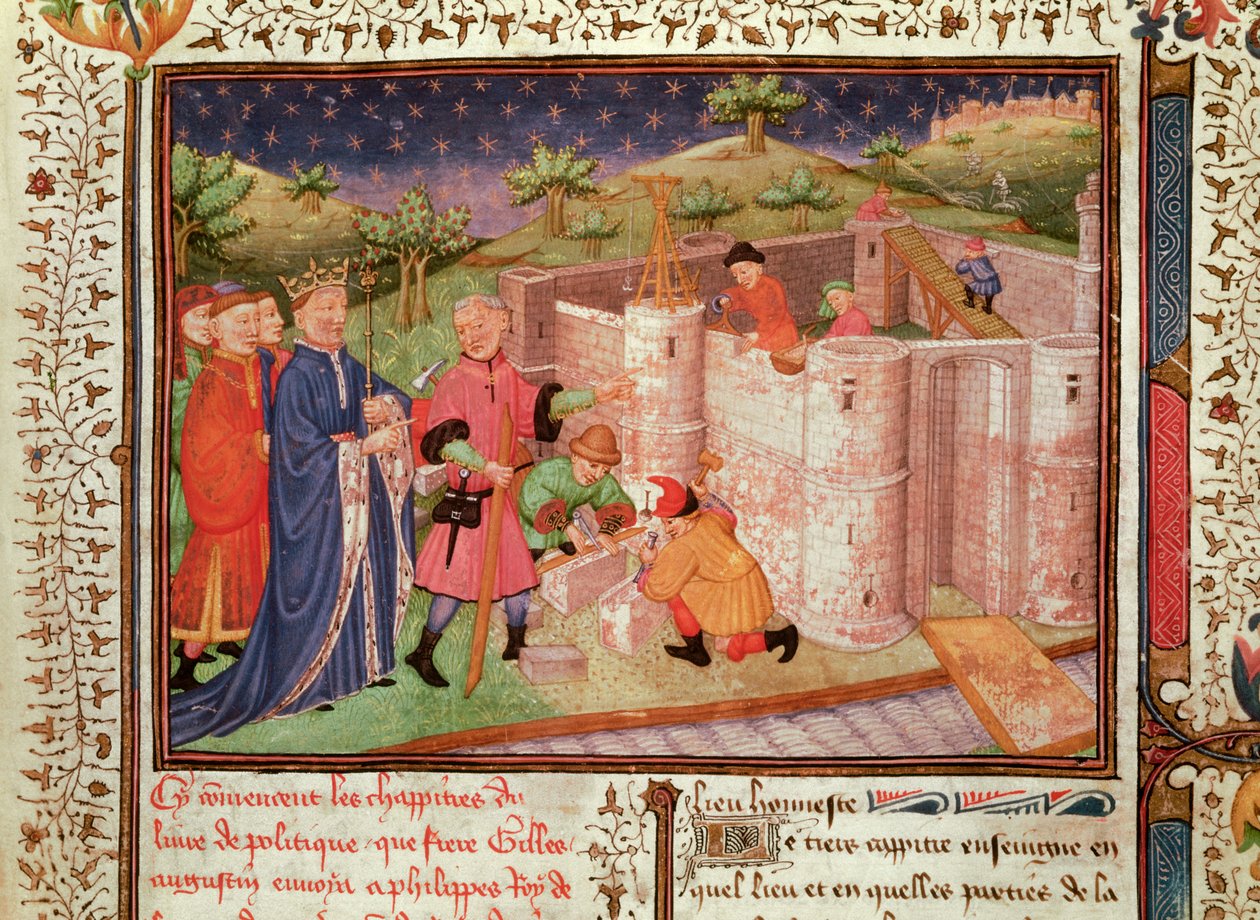 Cy cõmencent les chappitres du
liure de politique que frere Gilles
augustin enuoya a philippes Roy de
lieu honneste
e tiers cappitre enseingne en
quel lieu et en quelles parties de la